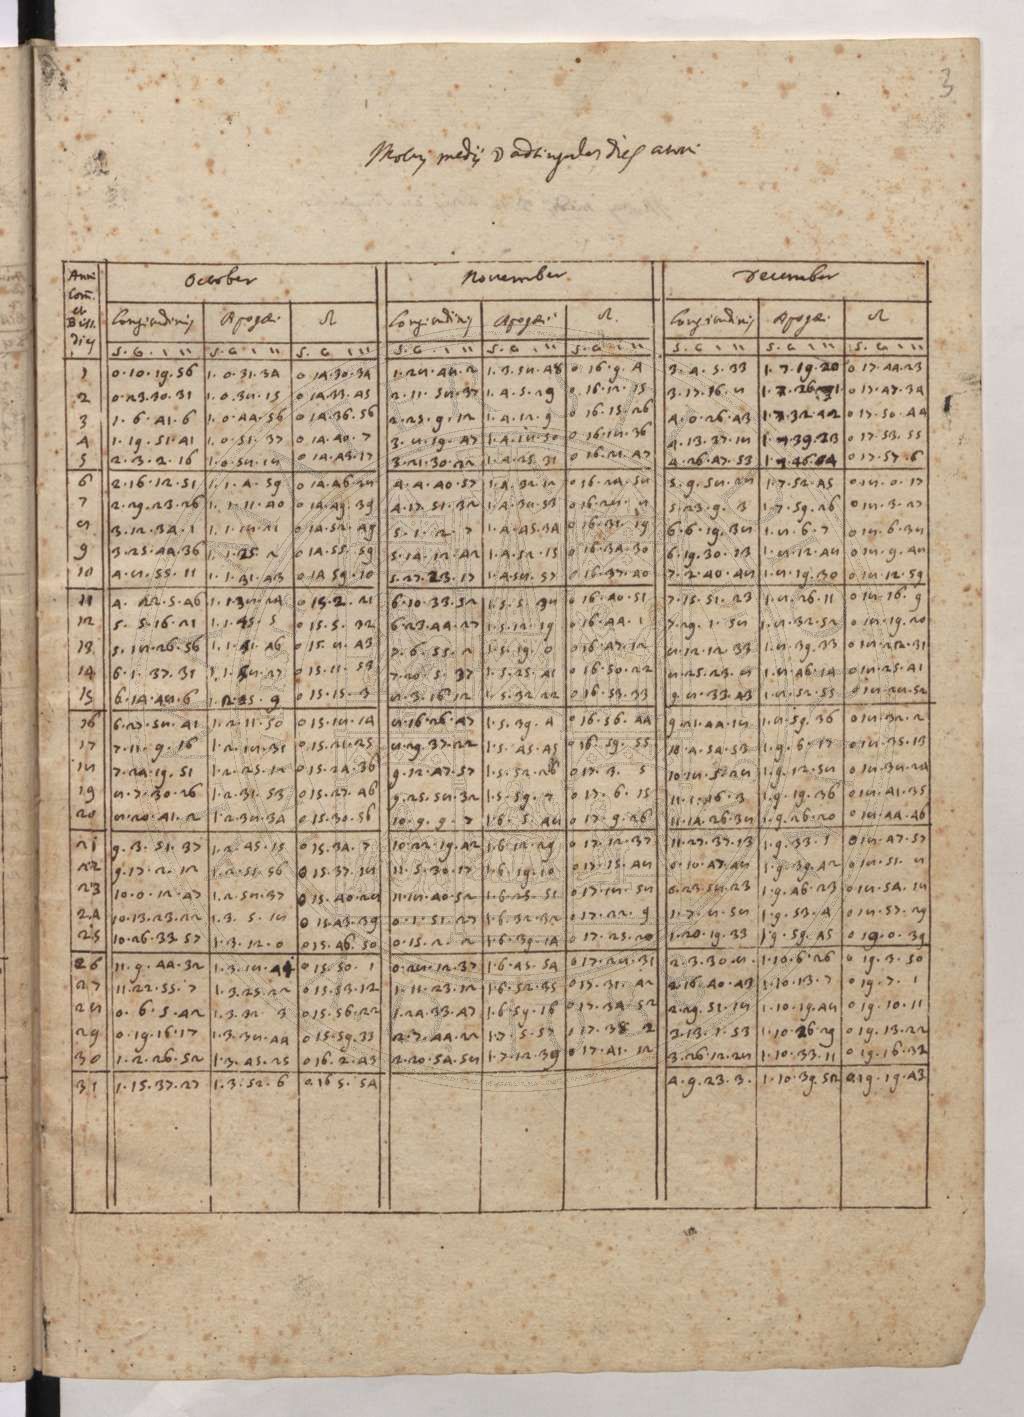 3
Motus medij ☽ ad singulos dies anni
Anni Com. et Biss. dies
October November December
Longitudinis Apogei ☊ Longitudinis Apogei ☊ Longitudinis Apogei ☊
S. G. ' '' S. G. ' '' S. G. ' '' S. G. ' '' S. G. ' '' S. G. ' '' S. G. ' '' S. G. ' '' S. G. ' ''
1 0.10.19.56 1.0.31.34 0 14.30.34 1.28.48.2 1.3.58.48 0 16.9.4 3.4.5.33 1.7.19.20 0 17.44.23
2 0.23.30.31 1.0.38.15 0 14.33.45 2.11.58.37 1.4.5.29 0 16.12.15 3.17.16.8 1.7.26.1 0 17.47.34
3 1.6.41.6 1.0.44.56 0 14.36.56 2.25.9.12 1.4.12.9 0 16.15.26 4.0.26.43 1.7.32.42 0 17.50.44
4 1.19.51.41 1.0.51.37 0 14.40.7 3.8.19.47 1.4.18.50 0 16.18.36 4.13.37.18 1.7.39.23 0 17.53.55
5 2.3.2.16 1.0.58.18 0 14.43.17 3.21.30.22 1.4.25.31 0 16.21.47 4.26.47.53 1.7.46.04 0 17.57.6
6 2.16.12.51 1.1.4.59 0 14.46.28 4.4.40.57 1.4.32.12 0 16.24.58 5.9.58.28 1.7.52.45 0 18.0.17
7 2.29.23.26 1.1.11.40 0 14.49.39 4.17.51.32 1.4.38.53 0 16.28.8 5.23.9.3 1.7.59.26 0 18.3.27
8 3.12.34.1 1.1.18.21 0 14.52.49 5.1.2.7 1.4.45.34 0 16.31.19 6.6.19.38 1.8.6.7 0 18.6.38
9 3.25.44.36 1.1.25.2 0 14.55.59 5.14.12.42 1.4.52.15 0 16.34.30 6.19.30.13 1.8.12.48 0 18.9.48
10 4.8.55.11 1.1.31.43 0 14 59.10 5.27.23.17 1.4.58.57 0 16.37.40 7.2.40.48 1.8.19.30 0 18.12.59
11 4.22.5.46 1.1.38.24 0 15.2.21 6.10.33.52 1.5.5.38 0 16.40.51 7.15.51.23 1.8.26.11 0 18.16.9
12 5.5.16.21 1.1.45.5 0 15.5.32 6.23.44.27 1.5.12.19 0 16.44.1 7.29.1.58 1.8.32.52 0 18.19.20
13 5.18.26.56 1.1.51.46 0 15.8.43 7.6.55.2 1.5.19.0 0 16.47.12 8.12.12.33 1.8.39.33 0 18.22.31
14 6.1.37.31 1.1.58.27 0 15.11.53 7.20.5.37 1.5.25.41 0 16.50.22 8.25.23.8 1.8.46.14 0 18.25.41
15 6.14.48.6 1.2.5.9 0 15.15.3 8.3.16.12 1.5.32.22 0 16.53.33 9.8.33.43 1.8.52.55 0 18.28.52
16 6.27.58.41 1.2.11.50 0 15.18.14 8.16.26.47 1.5.39.4 0 16.56.44 9.21.44.18 1.8.59.36 0 18.32.2
17 7.11.9.16 1.2.18.31 0 15.21.25 8.29.37.22 1.5.45.45 0 16.59.55 10.4.54.53 1.9.6.17 0 18.35.13
18 7.24.19.51 1.2.25.12 0 15.24.36 9.12.47.57 1.5.52.26 0 17.3.5 10.18.5.28 1.9.12.58 0 18.38.24
19 8.7.30.26 1.2.31.53 0 15.27.46 9.25.58.32 1.5.59.7 0 17.6.15 11.1.16.3 1.9.19.36 0 18.41.35
20 8.20.41.2 1.2.38.34 0 15.30.56 10.9.9.7 1.6.5.48 0 17.9.26 11.14.26.38 1.9.26.20 0 18.44.46
21 9.3.51.37 1.2.45.15 0 15.34.7 10.22.19.42 1.6.12.29 0 17.12.37 11.27.37.13 1.9.33.1 0 18.47.57
22 9.17.2.12 1.2.51.56 0 15.37.18 11.5.30.17 1.6.19.10 0 17.15.48 0.10.47.48 1.9.39.42 0 18.51.8
23 10.0.12.47 1.2.58.37 0 15.40.28 11.18.40.52 1.6.25.51 0 17.18.58 0.23.58.23 1.9.46.23 0 18.54.18
24 10.13.23.22 1.3.5.18 0 15.43.39 0.1.51.27 1.6.32.32 0 17.22.9 1.7.8.58 1.9.53.4 0 18.57.29
25 10.26.33.57 1.3.12.0 0 15.46.50 0.15.2.2 1.6.39.14 0 17.25.20 1.20.19.33 1.9.59.45 0 19.0.39
26 11.9.44.32 1.3.18.41 0 15.50.1 0.28.12.37 1.6.45.54 0 17.28.31 2.3.30.8 1.10.6.26 0 19.3.50
27 11.22.55.7 1.3.25.22 0 15.53.12 1.11.23.12 1.6.52.35 0 17.31.42 2.16.40.43 1.10.13.7 0 19.7.1
28 0.6.5.42 1.3.32.3 0 15.56.22 1.24.33.47 1.6.59.16 0 17.34.52 2.29.51.18 1.10.19.48 0 19.10.11
29 0.19.16.17 1.3.38.44 0 15.59.33 2.7.44.22 1.7.5.57 0 17.38.2 3.13.1.53 1.10.26.29 0 19.13.22
30 1.2.26.52 1.3.45.25 0 16.2.43 2.20.54.58 1.7.12.39 0 17.41.12 3.26.12.28 1.10.33.11 0 19.16.32
31 1.15.37.27 1.3.52.6 0 16 5.54 4.9.23.3 1.10.39.52 0.19.19.43